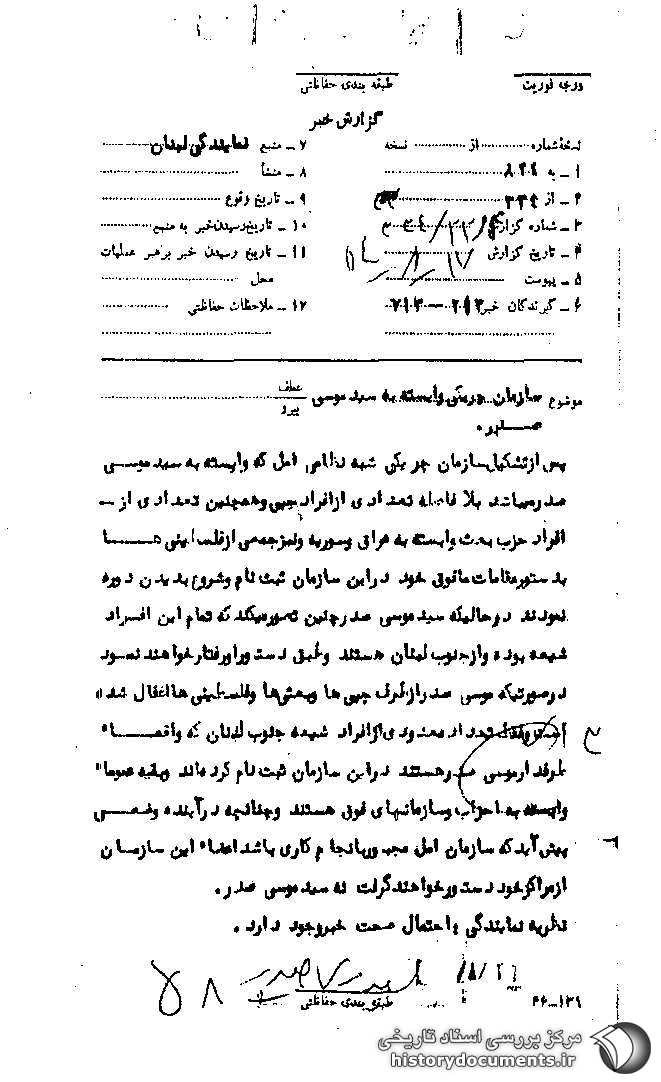 درجه فوریت
طبقه بندی حفاظتی
گزارش خبر
نسخهٔ شماره .......... از .......... نسخه
۱ - به
۲ - از
۳ - شماره گزارش
۴ - تاریخ گزارش
۵ - پیوست
۶ - گیرندگان خبر
۷ - منبع نمایندگی لبنان
۸ - منشأ
۹ - تاریخ وقوع
۱۰ - تاریخ رسیدن خبر به منبع
۱۱ - تاریخ رسیدن خبر برهبر عملیات
محل
۱۲ - ملاحظات حفاظتی
موضوع سازمان چریکی وابسته به سید موسی
صدر.
عطف
پیرو
پس از تشکیل سازمان چریکی شبه نظامی امل که وابسته به سید موسی
صدر میباشد بلا فاصله تعدادی از افراد چپی وهمچنین تعدادی از -
افراد حزب بعث وابسته به عراق وسوریه ونیز جمعی از فلسطینی هـــا
بدستور مقامات مافوق خود در این سازمان ثبت نام وشروع بدیدن دوره
نمودند در حالیکه سید موسی صدر چنین تصور میکند که تمام این افــراد
شیعه بوده واز جنوب لبنان هستند وطبق دستور او رفتار خواهند نمــود
در صورتیکه موسی صدر از طرف چپی ها وبعثی ها وفلسطینی ها اغفال شده
است وفقط تعداد معدودی از افراد شیعه جنوب لبنان که واقعـــا"
طرفدار موسی صدر هستند در این سازمان ثبت نام کرده اند وبقیه عموما"
وابسته به احزاب وسازمانهای فوق هستند وچنانچه در آینده وضعــی
پیش آید که سازمان امل مجبور بانجام کاری باشد اعضاء این سازمــان
از مراکز خود دستور خواهند گرفت نه سید موسی صدر.
نظریه نمایندگی: احتمال صحت خبر وجود دارد.
طبقه بندی حفاظتی
مرکز بررسی اسناد تاریخی
historydocuments.ir